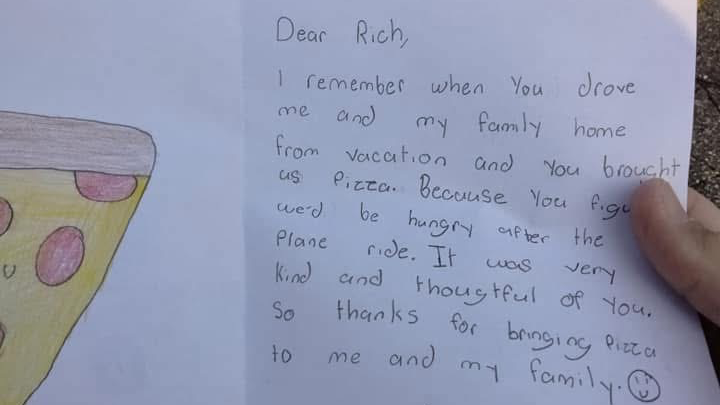 Dear Rich,
I remember when you drove
me and my family home
from vacation and you brought
us Pizza. Because you figu
we-d be hungry after the
Plane ride. It was very
Kind and thougtful of you.
So thanks for bringing Pizza
to me and my family.